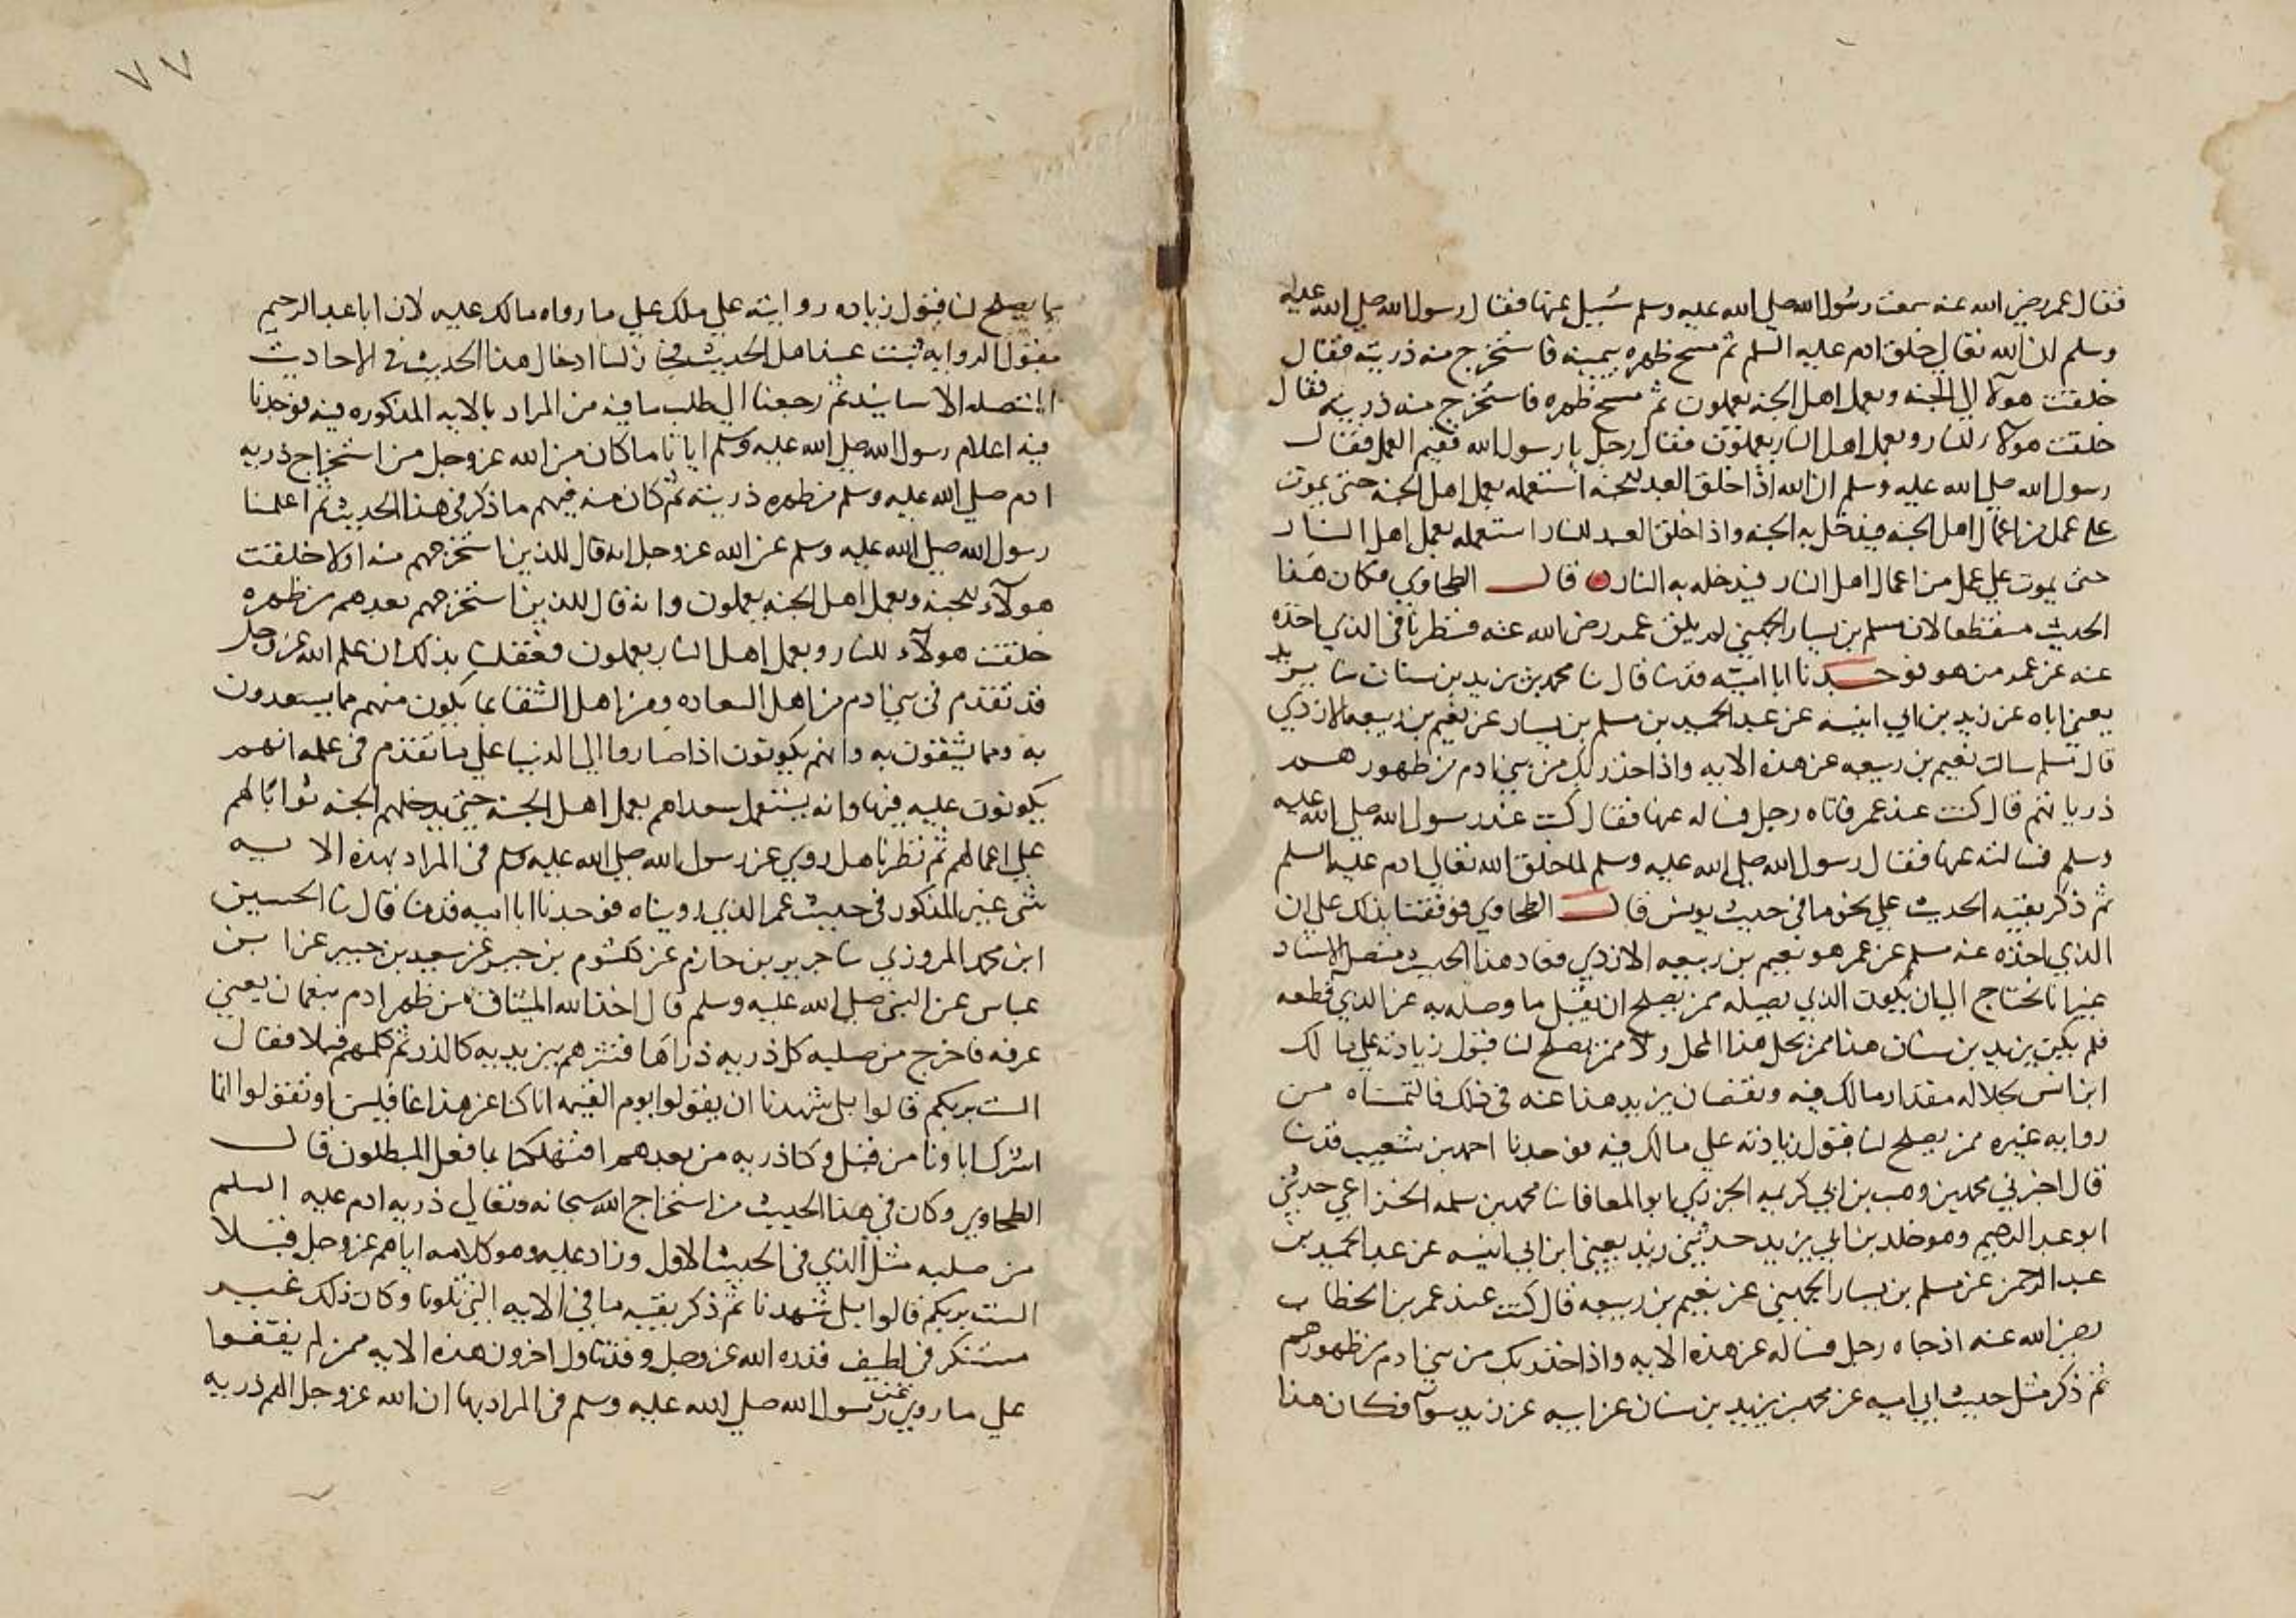 فقال عمر رضي الله عنه سمعت رسول الله صلي الله عليه وسلم سُيل عنها فقال رسول الله صلي الله عليه
وسلم ان الله تعالي خلق ادم عليه السلم ثم مسح ظهره بيمينه فاستخرج منه ذريته فقال
خلقت هولآء الي الجنه وبعمل اهل الجنه يعملون ثم مسح ظهره فاستخرج منه ذريته فقال
خلقت هولآء للنار وبعمل اهل النار يعملون فقال رجل يا رسول الله ففيم العمل فقال
رسول الله صلي الله عليه وسلم ان الله اذا خلق العبد للجنه استعمله بعمل اهل الجنه حتي يموت
علي عمل من اعمال اهل الجنه فيدخل به الجنه واذا خلق العبد للنار استعمله بعمل اهل النار
حتي يموت علي عمل من اعمال اهل النار فيدخله به النار قال الطحاوي فكان هذا
الحديث منقطعا لان مسلم بن يسار الجهني لم يلق عمر رضي الله عنه فنظرنا في الذي اخذه
عنه عن عمر من هو فوجدنا ابا اميه قد نا قال نا محمد بن يزيد بن سنان نا يزيد
يعني اباه عن زيد بن ابي انيسه عن عبد الحميد بن مسلم بن يسار عن نعيم بن ربيعه الازدي
قال مسلم سالت نعيم بن ربيعه عن هذه الايه واذ اخذ ربك من بني ادم من ظهورهم
ذرياتهم قال كنت عند عمر فاتاه رجل فساله عنها فقال كنت عند رسول الله صلي الله عليه
وسلم فسالته عنها فقال رسول الله صلي الله عليه وسلم لما خلق الله تعالي ادم عليه السلم
ثم ذكر بقيه الحديث علي نحو ما في حديث يونس قال الطحاوي فوقفنا بذلك علي ان
الذي اخذه عنه مسلم عن عمر هو نعيم بن ربيعه الازدي فعاد هذا الحديث متصل الاسناد
غير انا نحتاج الي ان يكون الذي يصله ممن يصلح ان يقبل ما وصله به عن الذي قطعه
فلم يكن يزيد بن سنان هذا ممن يحل هذا المحل ولا ممن يصلح لنا قبول زيادته علي مالك
ابن انس بجلاله مقدار مالك فيه ونقصان يزيد هذا عنه في ذلك فالتمسناه من
روايه غيره ممن يصلح لنا قبول زيادته علي مالك فيه فوجدنا احمد بن شعيب قد نا
قال اخبرني محمد بن وهب بن ابي كريمه الجزري يا بو المعافا نا محمد بن سلمه الخزاعي حدثني
ابو عبد الرحيم وهو خلد بن ابي يزيد حدثني زيد يعني ابن ابي انيسه عن عبد الحميد بن
عبد الرحمن عن مسلم بن يسار الجهني عن نعيم بن ربيعه قال كنت عند عمر بن الخطاب
رضي الله عنه اذ جاه رجل فساله عن هذه الايه واذ اخذ ربك من بني ادم من ظهورهم
ثم ذكر مثل حديث ابي اميه عن محمد بن يزيد بن سنان عن ابيه عن زيد سوآ فكان هذا
٧٧
مما يصلح لنا قبول زياده روايته علي ملك علي ما رواه مالك عليه لان ابا عبد الرحيم
مقبول الروايه ثبت عند اهل الحديث فجاز لنا ادخال هذا الحديث في الاحاديث
المتصله الاسانيد ثم رجعنا الي طلب ما فيه من المراد بالايه المذكوره فيه فوجدنا
فيه اعلام رسول الله صلي الله عليه وسلم ايانا ما كان من الله عز وجل من استخراج ذريه
ادم صلي الله عليه وسلم من ظهره ذريته ثم كان منه فيهم ما ذكر في هذا الحديث ثم اعلمنا
رسول الله صلي الله عليه وسلم عن الله عز وجل انه قال للذين استخرجهم منه اولا خلقت
هولآء للجنه وبعمل اهل الجنه يعملون وانه قال للذين استخرجهم بعدهم من ظهره
خلقت هولآء للنار وبعمل اهل النار يعملون فعقلنا بذلك ان علم الله عز وجل
قد تقدم في بني ادم من اهل السعاده ومن اهل الشقا بما يكون منهم مما يسعدون
به ومما يشقون به وانهم يكونون اذا صاروا الي الدنيا علي ما تقدم في علمه انهم
يكونون عليه فيها وانه يستعمل سعداهم بعمل اهل الجنه حتي يدخلهم الجنه ثوابا لهم
علي اعمالهم ثم نظرنا هل روي عن رسول الله صلي الله عليه وسلم في المراد بهذه الايه
شي غير المذكور في حديث عمر الذي رويناه فوجدنا ابا اميه قد نا قال نا الحسين
ابن محمد المروزي نا جرير بن حازم عن كلثوم بن جبر عن سعيد بن جبير عن ابن
عباس عن النبي صلي الله عليه وسلم قال اخذ الله الميثاق من ظهر ادم بنعمان يعني
عرفه فاخرج من صلبه كل ذريه ذراها فنثرهم بين يديه كالذر ثم كلمهم قبلا فقال
الست بربكم قالوا بلي شهدنا ان يقولوا يوم القيمه انا كنا عن هذا غافلين او تقولوا انما
اشرك اباونا من قبل وكنا ذريه من بعدهم افتهلكنا بما فعل المبطلون قال
الطحاوي وكان في هذا الحديث من استخراج الله سبحانه وتعالي ذريه ادم عليه السلم
من صلبه مثل الذي في الحديث الاول وزاد عليه وهو كلامه اياهم عز وجل قبلا
الست بربكم قالوا بلي شهدنا ثم ذكر بقيه ما في الايه التي تلونا وكان ذلك غير
مستنكر في لطيف قدره الله عز وجل وقد تاول اخرون هذه الايه ممن لم يقفوا
علي ما روي عن رسول الله صلي الله عليه وسلم في المراد بها ان الله عز وجل الهم ذريه